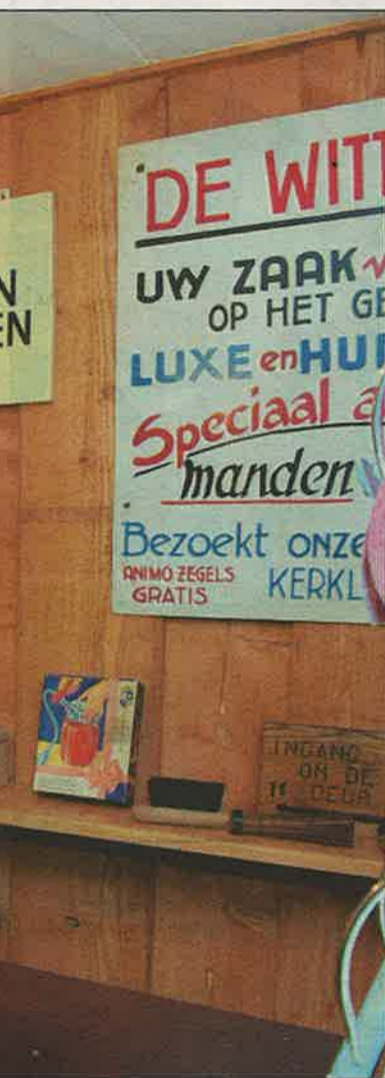 N
EN
DE WIT
UW ZAAK
OP HET GE
LUXE en HUI
Speciaal a
manden
Bezoekt onze
ANIMO ZEGELS
GRATIS
KERKL
INGANG
OM DE
DEUR